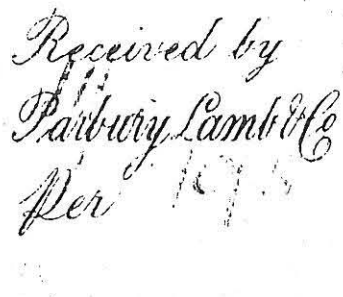 Received by
Parbury Lamb & Co
Per